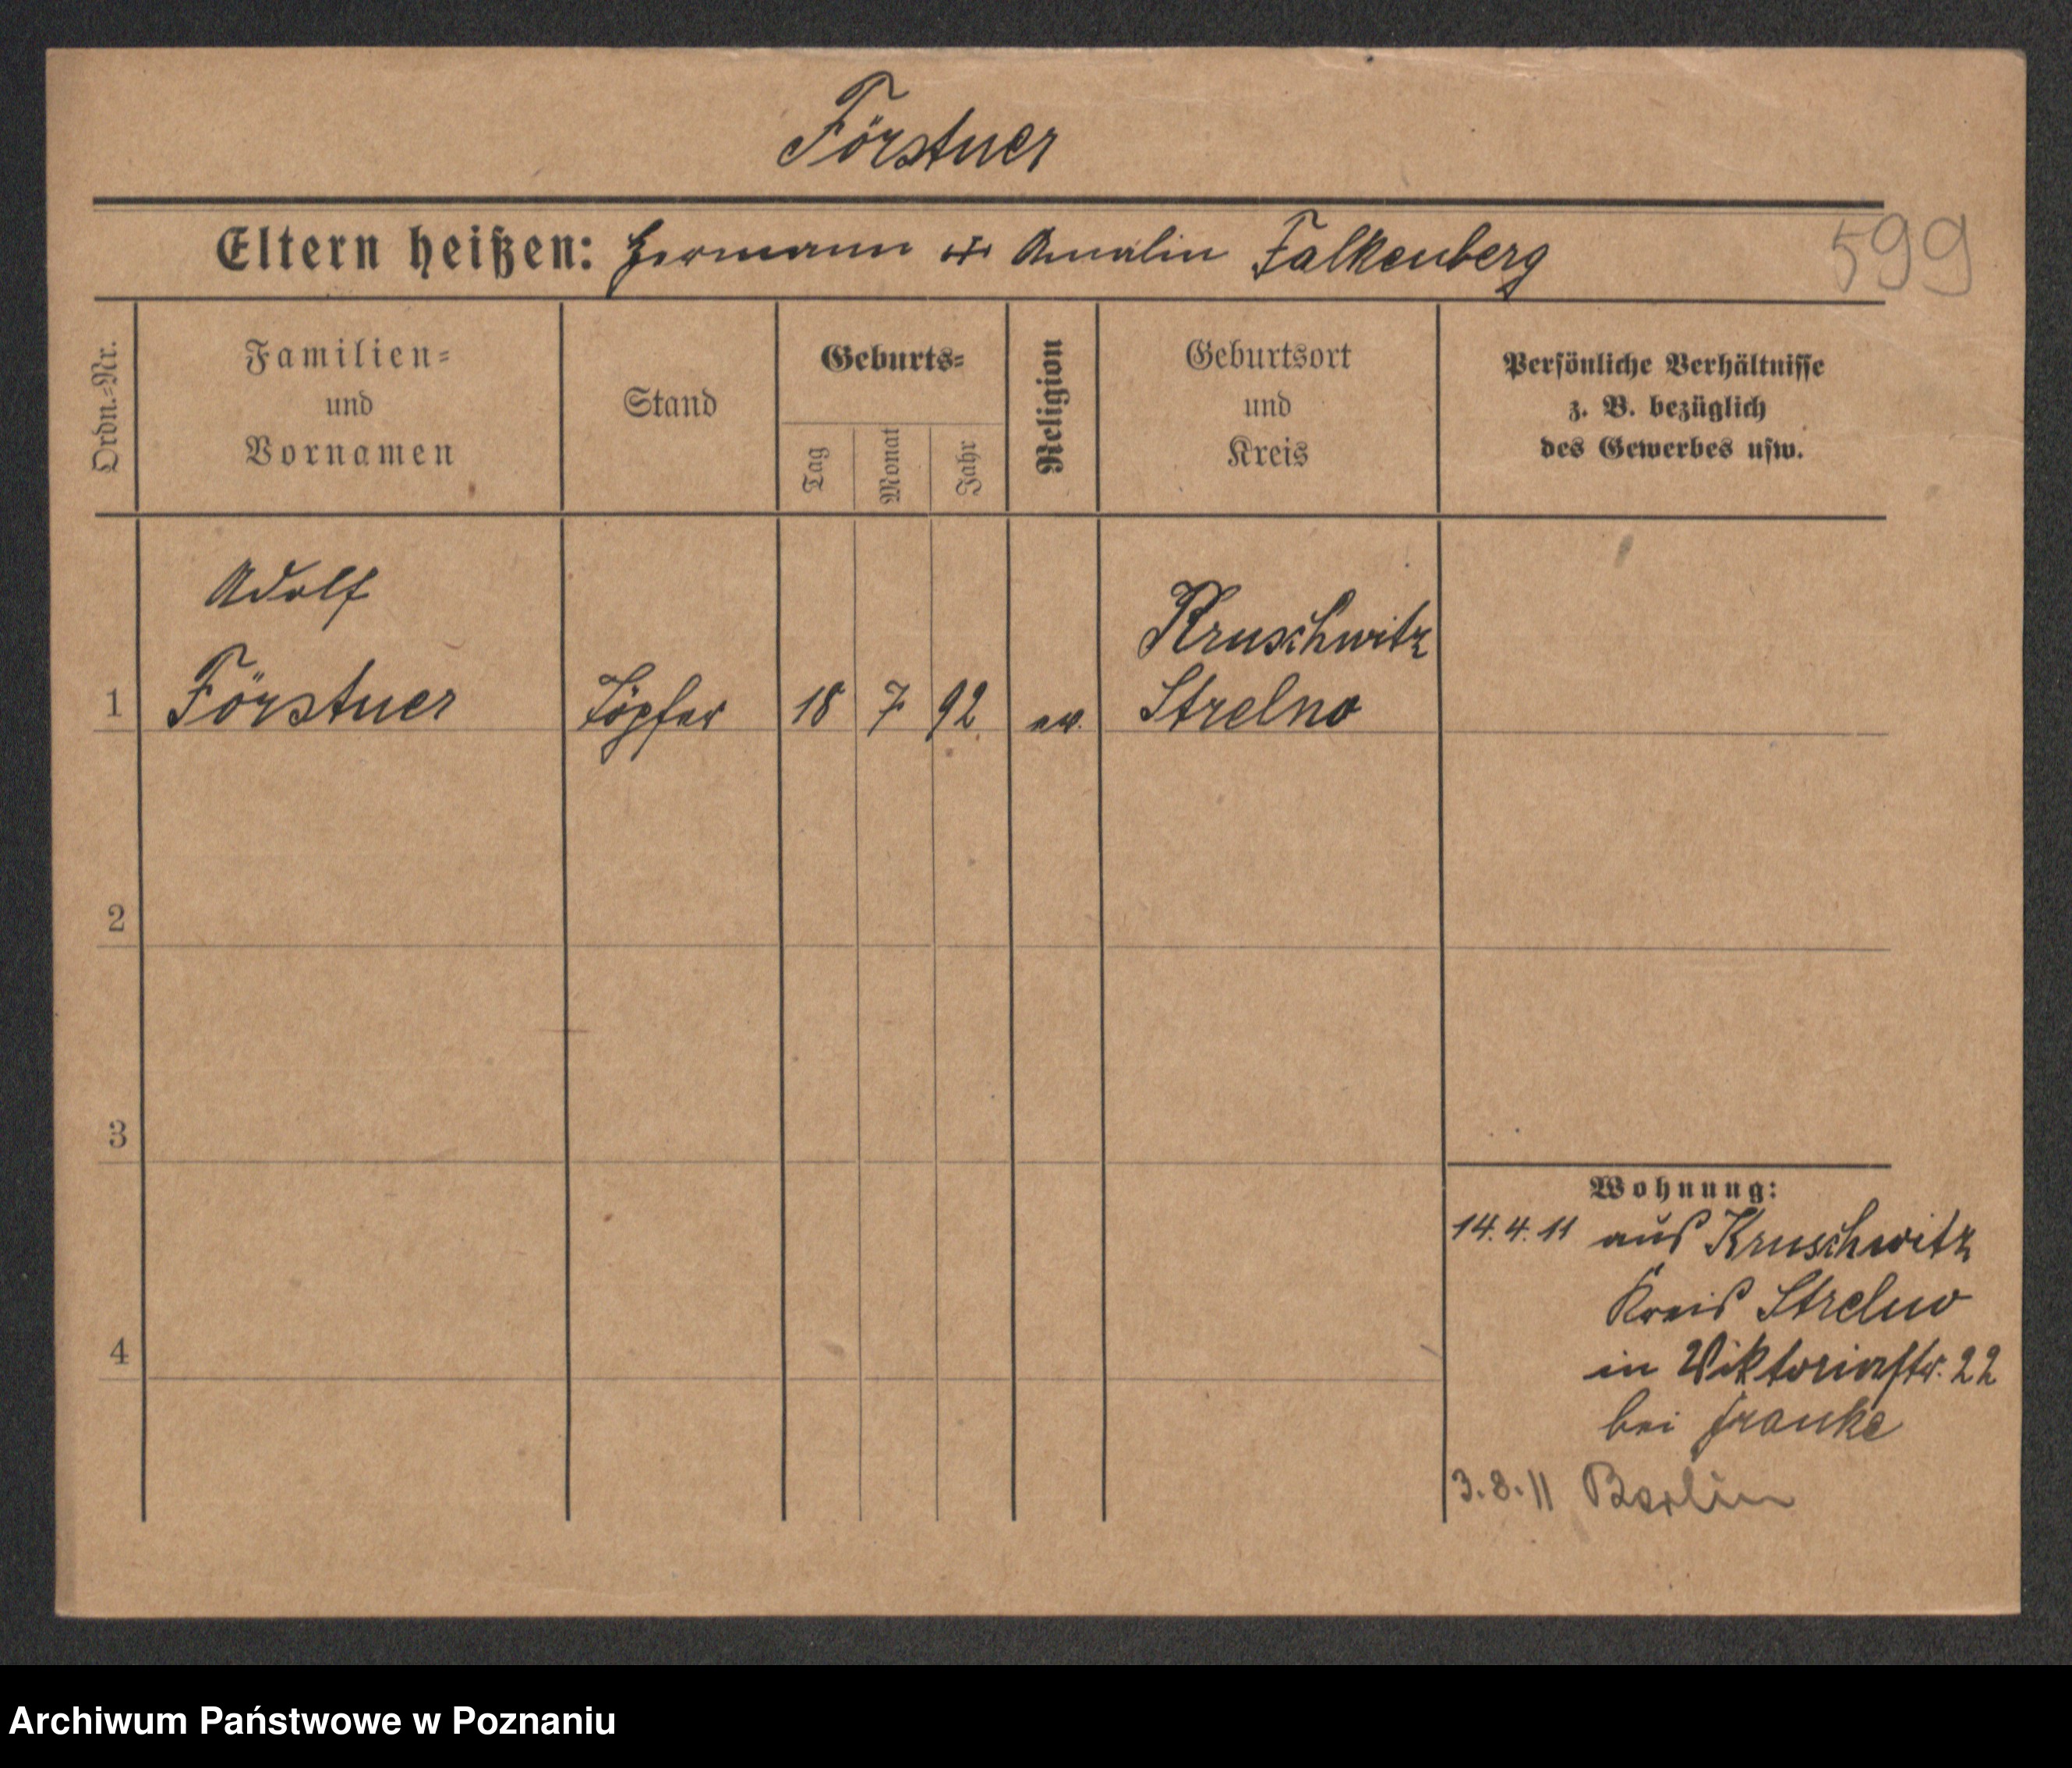 Förstner
Eltern heißen: Hermann u. Amalie Falkenberg
599
Ordn.=Nr.
Familien=
und
Vornamen
Stand
Geburts=
Tag
Monat
Jahr
Religion
Geburtsort
und
Kreis
Persönliche Verhältnisse
z. B. bezüglich
des Gewerbes usw.
Adolf
Kruschwitz
1 Förstner Töpfer 18 7 92 ev. Strelno
2
3
Wohnung:
14.4.11 aus Kruschwitz
Kreis Strelno
4
in Viktoriastr. 22
bei Franke
3.8.11 Berlin
Archiwum Państwowe w Poznaniu